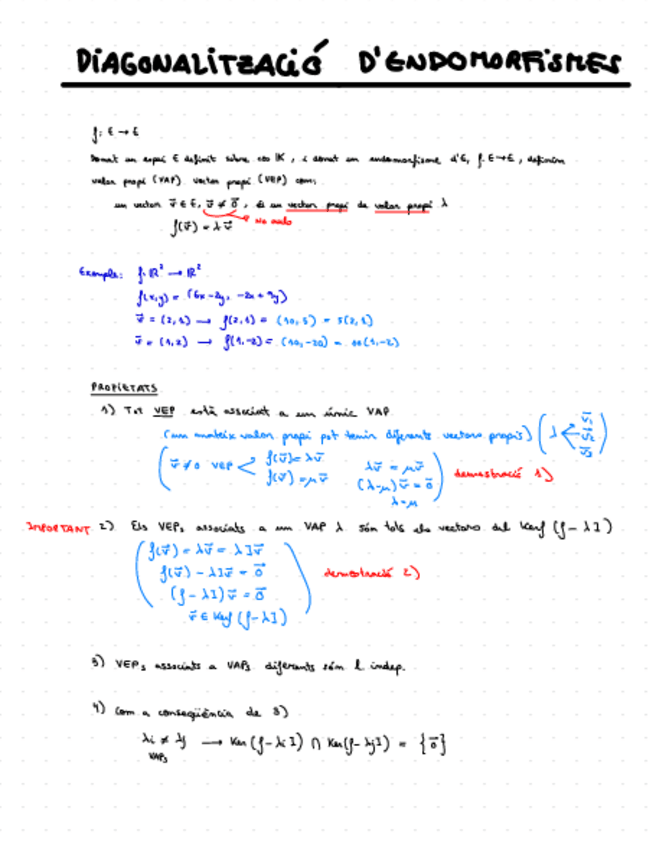 DIAGONALITZACIÓ D'ENDOMORFISMES
f: E → E
Donat un espai E definit sobre cos K, i donat un endomorfisme d'E, f: E→E, definim
valor propi (VAP) vector propi (VEP) com:
un vector v⃗ ∈ E, v⃗ ≠ 0⃗, és un vector propi de valor propi λ
No nulo
f(v⃗) = λv⃗
Exemple: f: ℝ² → ℝ²
f(x,y) = (6x-2y, -2x+9y)
v⃗ = (2,1) → f(2,1) = (10,5) = 5(2,1)
v⃗ = (1,2) → f(1,-2) = (10,-20) = 10(1,-2)
PROPIETATS
1) Tot VEP està associat a un únic VAP
(un mateix valor propi pot tenir diferents vectors propis) (λ < v⃗1 v⃗2 v⃗3)
(v⃗ ≠ 0 VEP < f(v⃗) = λv⃗ λv⃗ = μv⃗
f(v⃗) = μv⃗ (λ-μ)v⃗ = 0⃗
λ = μ) demostració 1)
IMPORTANT 2) Els VEPs associats a un VAP λ són tots els vectors del Kerf (f - λI)
(f(v⃗) = λv⃗ = λIv⃗
f(v⃗) - λIv⃗ = 0⃗ demostració 2)
(f - λI)v⃗ = 0⃗
v⃗ ∈ Kerf (f - λI))
3) VEPs associats a VAPs diferents són l. indep.
4) Com a conseqüència de 3)
λi ≠ λj → Ker (f - λi I) ∩ Ker (f - λj I) = {0⃗}
VAPs